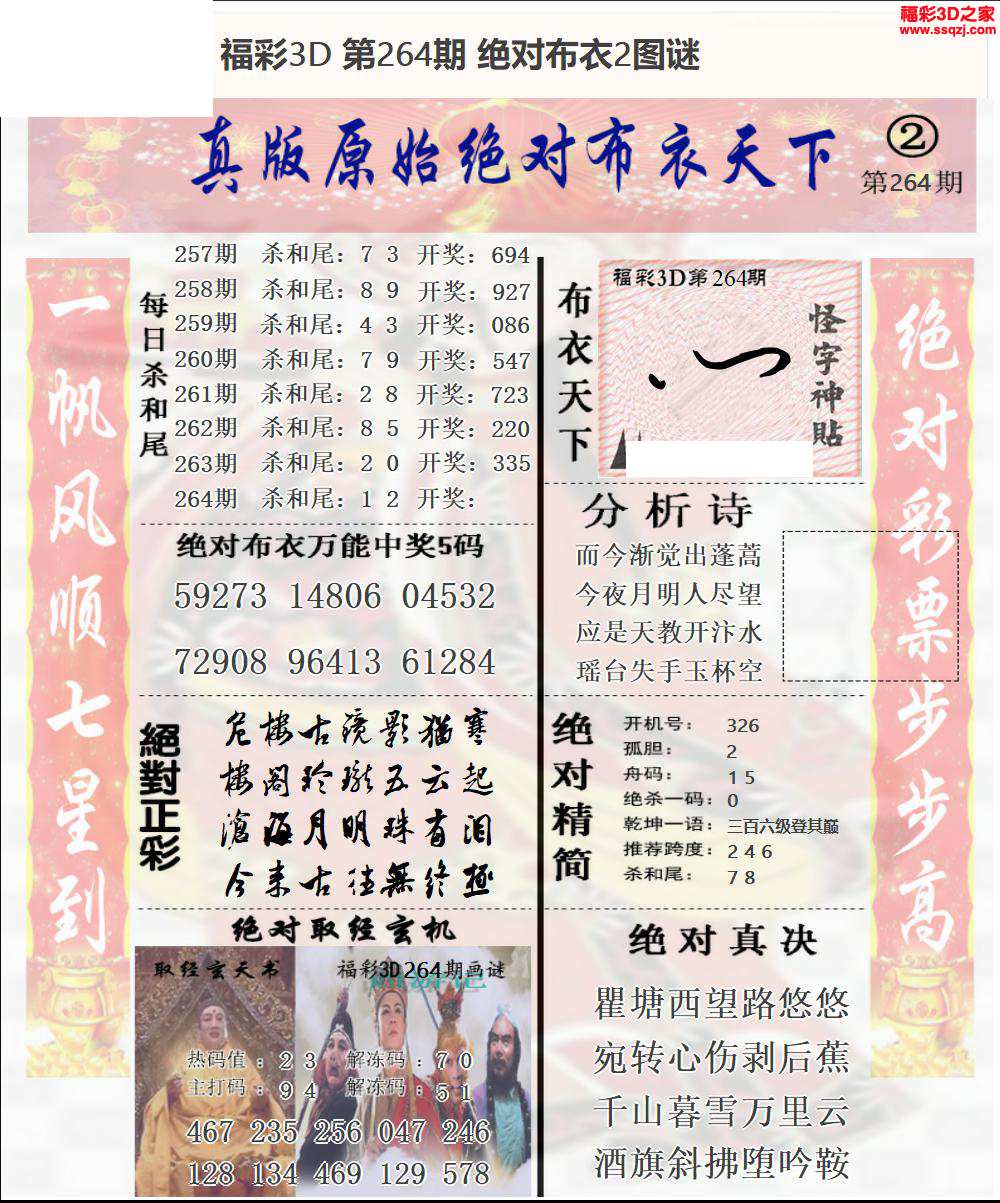 福彩3D之家
www.ssqzj.com
福彩3D 第264期 绝对布衣2图谜
真版原始绝对布衣天下
②
第264期
一帆风顺七星到
每日杀和尾
257期 杀和尾：7 3 开奖：694
258期 杀和尾：8 9 开奖：927
259期 杀和尾：4 3 开奖：086
260期 杀和尾：7 9 开奖：547
261期 杀和尾：2 8 开奖：723
262期 杀和尾：8 5 开奖：220
263期 杀和尾：2 0 开奖：335
264期 杀和尾：1 2 开奖：
绝对布衣万能中奖5码
59273 14806 04532
72908 96413 61284
絕對正彩
危楼古镜影猶寒
楼阁玲珑五云起
滄海月明珠有泪
今来古往無终極
绝对取经玄机
取经玄天书
福彩3D264期画谜
热码值：2 3 解冻码：7 0
主打码：9 4 解冻码：5 1
467 235 256 047 246
128 134 469 129 578
布衣天下
福彩3D第264期
怪字神貼
分析诗
而今渐觉出蓬蒿
今夜月明人尽望
应是天教开汴水
瑶台失手玉杯空
绝对精简
开机号：326
孤胆：2
舟码：1 5
绝杀一码：0
乾坤一语：三百六级登其巅
推荐跨度：2 4 6
杀和尾：7 8
绝对真决
瞿塘西望路悠悠
宛转心伤剥后蕉
千山暮雪万里云
酒旗斜拂堕吟鞍
绝对彩票步步高